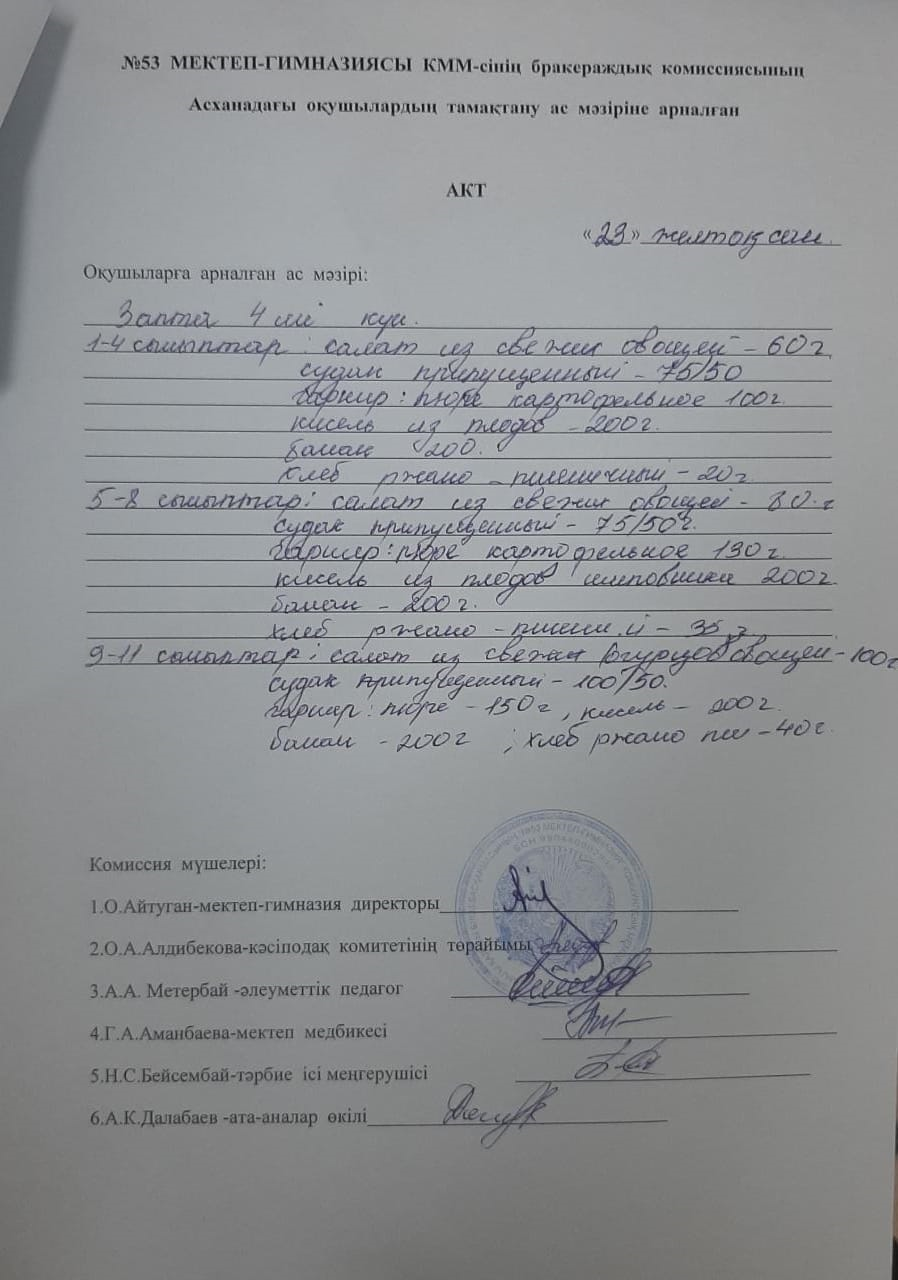 №53 МЕКТЕП-ГИМНАЗИЯСЫ КММ-сінің бракераждық комиссиясының
Асханадағы оқушылардың тамақтану ас мәзіріне арналған
АКТ
«23» желтоқсан.
Оқушыларға арналған ас мәзірі:
3 апта 4 ші күн.
1-4 сыныптар: салат из свежих овощей - 60 г
судак припущенный - 75/50
гарнир: пюре картофельное 100 г.
кисель из плодов - 200 г.
банан 200.
хлеб ржано - пшеничный - 20 г
5-8 сыныптар: салат из свежих овощей - 80 г
судак припущенный - 75/50 г.
гарнир: пюре картофельное 130 г.
кисель из плодов шиповника 200 г.
банан - 200 г.
хлеб ржано - пшенич.й - 35 г
9-11 сыныптар: салат из свежих огурцов овощей - 100 г
судак припущенный - 100/50.
гарнир: пюре - 150 г, кисель - 200 г.
банан - 200 г ; хлеб ржано пш - 40 г.
Комиссия мүшелері:
1.О.Айтуган-мектеп-гимназия директоры
2.О.А.Алдибекова-кәсіподақ комитетінің төрайымы
3.А.А. Метербай -әлеуметтік педагог
4.Г.А.Аманбаева-мектеп медбикесі
5.Н.С.Бейсембай-тәрбие ісі меңгерушісі
6.А.К.Далабаев -ата-аналар өкілі